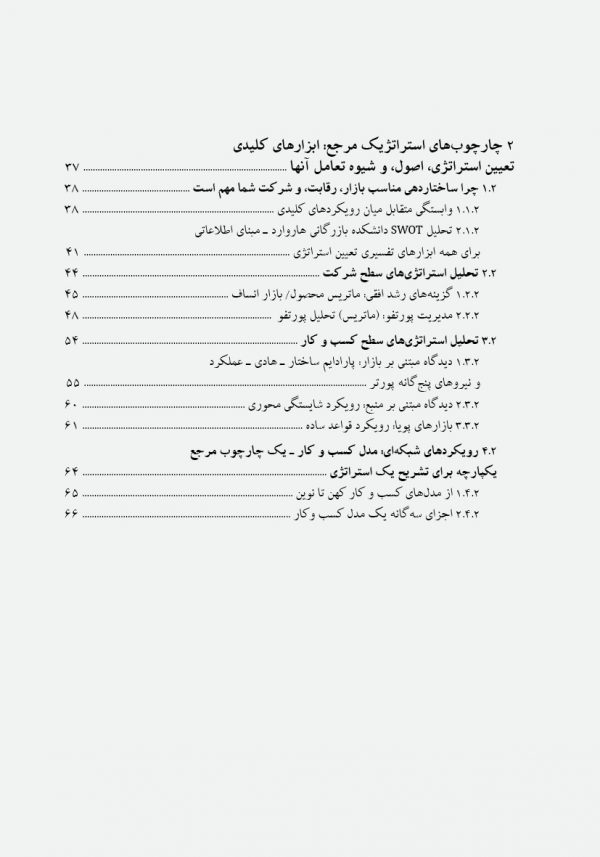 ۲ چارچوب‌های استراتژیک مرجع: ابزارهای کلیدی
تعیین استراتژی، اصول، و شیوه تعامل آنها ........ ۳۷
۱.۲ چرا ساختاردهی مناسب بازار، رقابت، و شرکت شما مهم است ........ ۳۸
۱.۱.۲ وابستگی متقابل میان رویکردهای کلیدی ........ ۳۸
۲.۱.۲ تحلیل SWOT دانشکده بازرگانی هاروارد ــ مبنای اطلاعاتی
برای همه ابزارهای تفسیری تعیین استراتژی ........ ۴۱
۲.۲ تحلیل استراتژی‌های سطح شرکت ........ ۴۴
۱.۲.۲ گزینه‌های رشد افقی: ماتریس محصول/ بازار انساف ........ ۴۵
۲.۲.۲ مدیریت پورتفو: (ماتریس) تحلیل پورتفو ........ ۴۸
۳.۲ تحلیل استراتژی‌های سطح کسب و کار ........ ۵۴
۱.۳.۲ دیدگاه مبتنی بر بازار: پارادایم ساختار ــ هادی ــ عملکرد
و نیروهای پنج‌گانه پورتر ........ ۵۵
۲.۳.۲ دیدگاه مبتنی بر منبع: رویکرد شایستگی محوری ........ ۶۰
۳.۳.۲ بازارهای پویا: رویکرد قواعد ساده ........ ۶۱
۴.۲ رویکردهای شبکه‌ای: مدل کسب و کار ــ یک چارچوب مرجع
یکپارچه برای تشریح یک استراتژی ........ ۶۴
۱.۴.۲ از مدل‌های کسب و کار کهن تا نوین ........ ۶۵
۲.۴.۲ اجزای سه‌گانه یک مدل کسب وکار ........ ۶۶